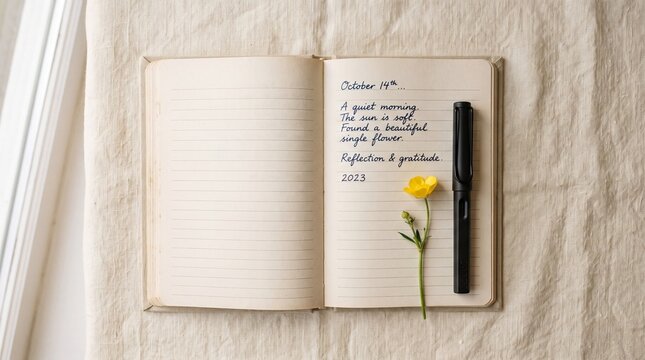 October 14th...
A quiet morning.
The sun is soft.
Found a beautiful
single flower.
Reflection & gratitude.
2023